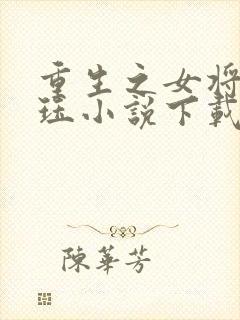 重生之女将
珏小説下載
陳華芳